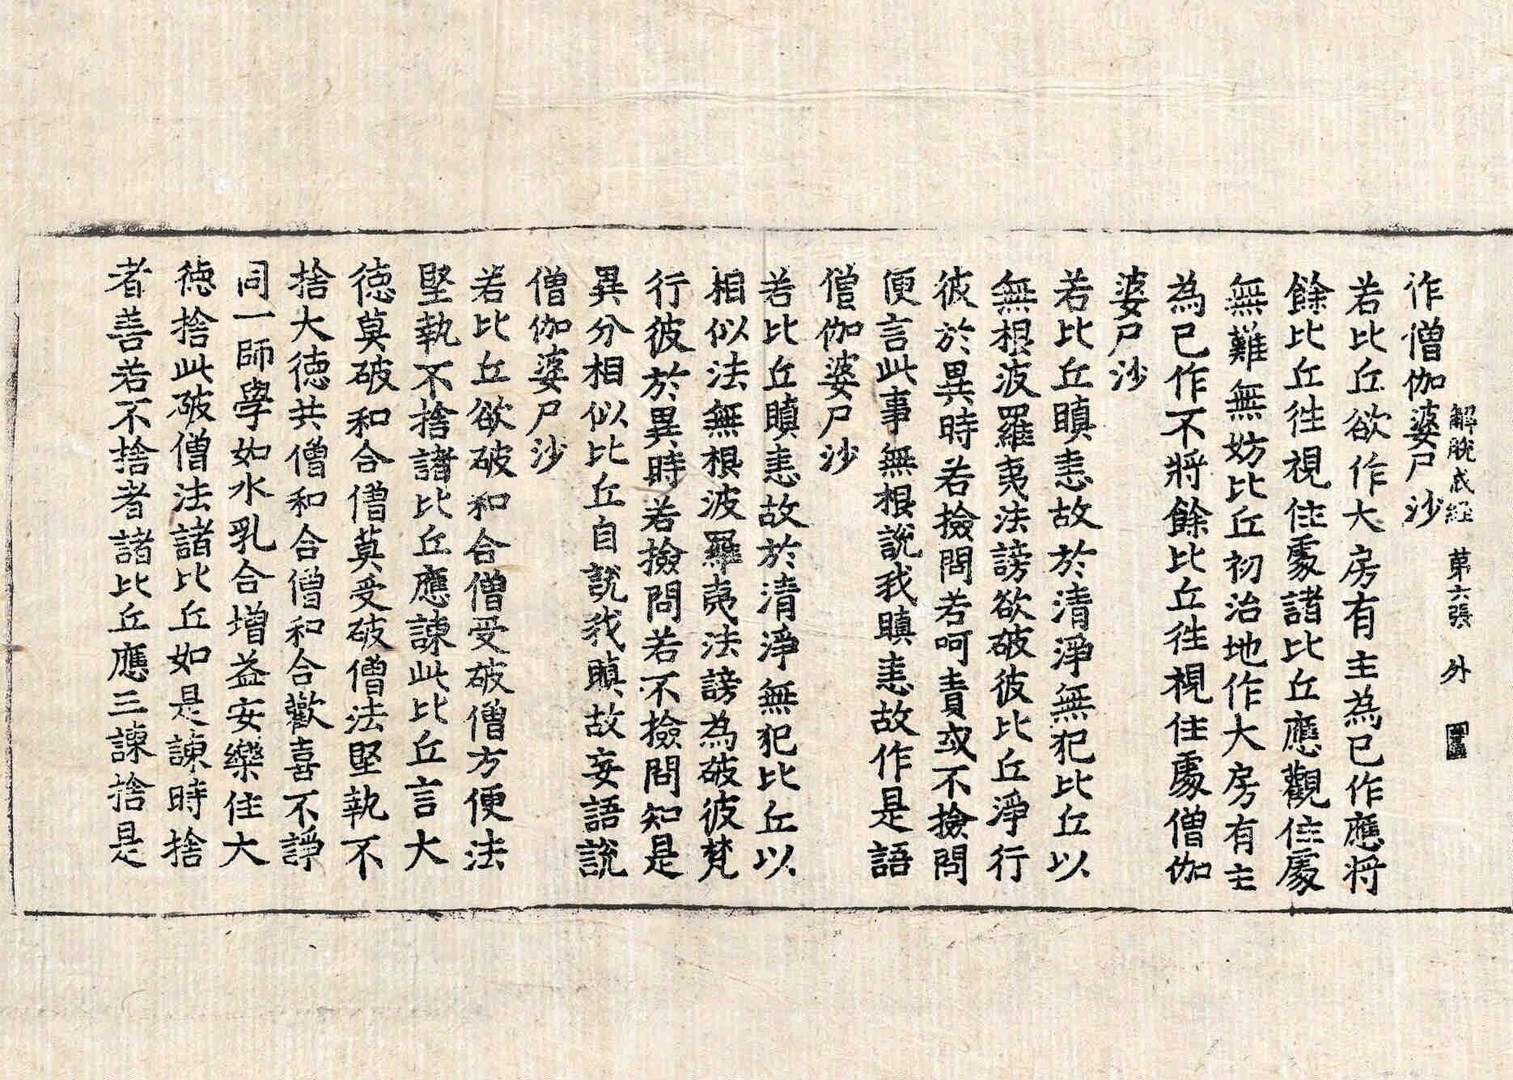 解脫戒經　第六張　外
作僧伽婆尸沙
若比丘欲作大房有主為已作應將
餘比丘徃視住處諸比丘應觀住處
無難無妨比丘初治地作大房有主
為已作不將餘比丘徃視住處僧伽
婆尸沙
若比丘瞋恚故於清淨無犯比丘以
無根波羅夷法謗欲破彼比丘淨行
彼於異時若撿問若呵責或不撿問
便言此事無根說我瞋恚故作是語
僧伽婆尸沙
若比丘瞋恚故於清淨無犯比丘以
相似法無根波羅夷法謗為破彼梵
行彼於異時若撿問若不撿問知是
異分相似比丘自說我瞋故妄語說
僧伽婆尸沙
若比丘欲破和合僧受破僧方便法
堅執不捨諸比丘應諫此比丘言大
德莫破和合僧莫受破僧法堅執不
捨大德共僧和合僧和合歡喜不諍
同一師學如水乳合增益安樂住大
德捨此破僧法諸比丘如是諫時捨
者善若不捨者諸比丘應三諫捨是